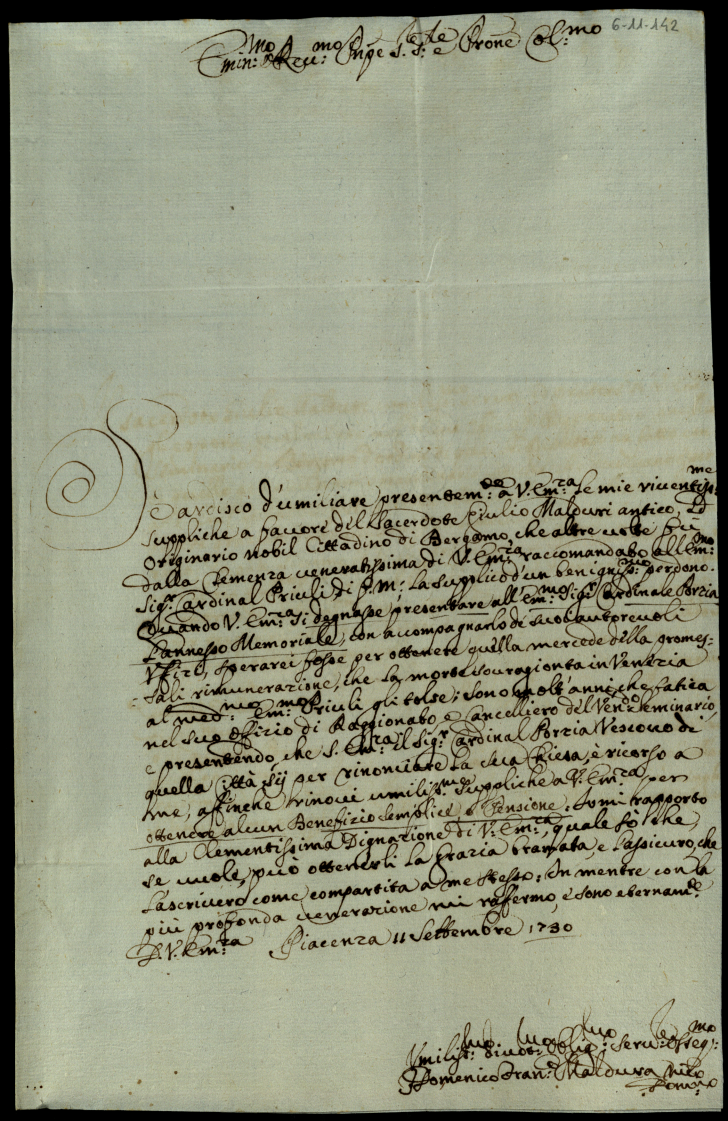 6-11-142
Emin:mo e Reu:mo Pnpe S.re S.re e Prone Col:mo
Ardisco d'umiliare presentem:te à V. Em:za le mie riuentiss:me
suppliche a fauore del Sacerdote Giulio Malduri antico, ed
Originario nobil Cittadino di Bergamo, che altre uolte fu
dalla Clemenza ueneratissima di V. Em:za raccomandato all'Em:mo
Sig:r Cardinal Priuli di F. M; La supplico d'un benignissi:mo perdono.
Quando V. Em:za si degnasse presentare all'Em:mo Sig:r Cardinale Porzia
l'annesso Memoriale, con accompagnarlo de suoi autoreuoli
Vffizi, sperarei fosse per ottenere quella mercede della promes-
sali rimunerazione, che la morte souragionta in Venezia
al med:mo Em:mo Priuli gli tolse; sono molt'anni, che fatica
nel suo offizio di Raggionato, e Cancelliero del Ven:do Seminario,
e presentendo, che S. Em:za il Sig:r Cardinal Porzia Vescouo di
quella Città sij per rinonciare la sua Chiesa, è ricorso a
me, affinche rinoui umilis:me suppliche a V. Em:za, per
ottenere alcun Benefizio semplice, ò Pensione: Io mi rapporto
alla Clementissima Dignazione di V. Em:za, quale sò che,
se uole, può ottenerli la Grazia bramata, e l'assicuro, che
l'ascriuerò come compartita a me stesso: In mentre con la
più profonda uenerazione mi raffermo, e sono eternam:te
D. V. Em:za Piacenza 11 Settembre 1730
Vmilis:mo Diuot:mo Oblig:mo Seru:re Osseq:mo
Domenico Fran:co Maldura